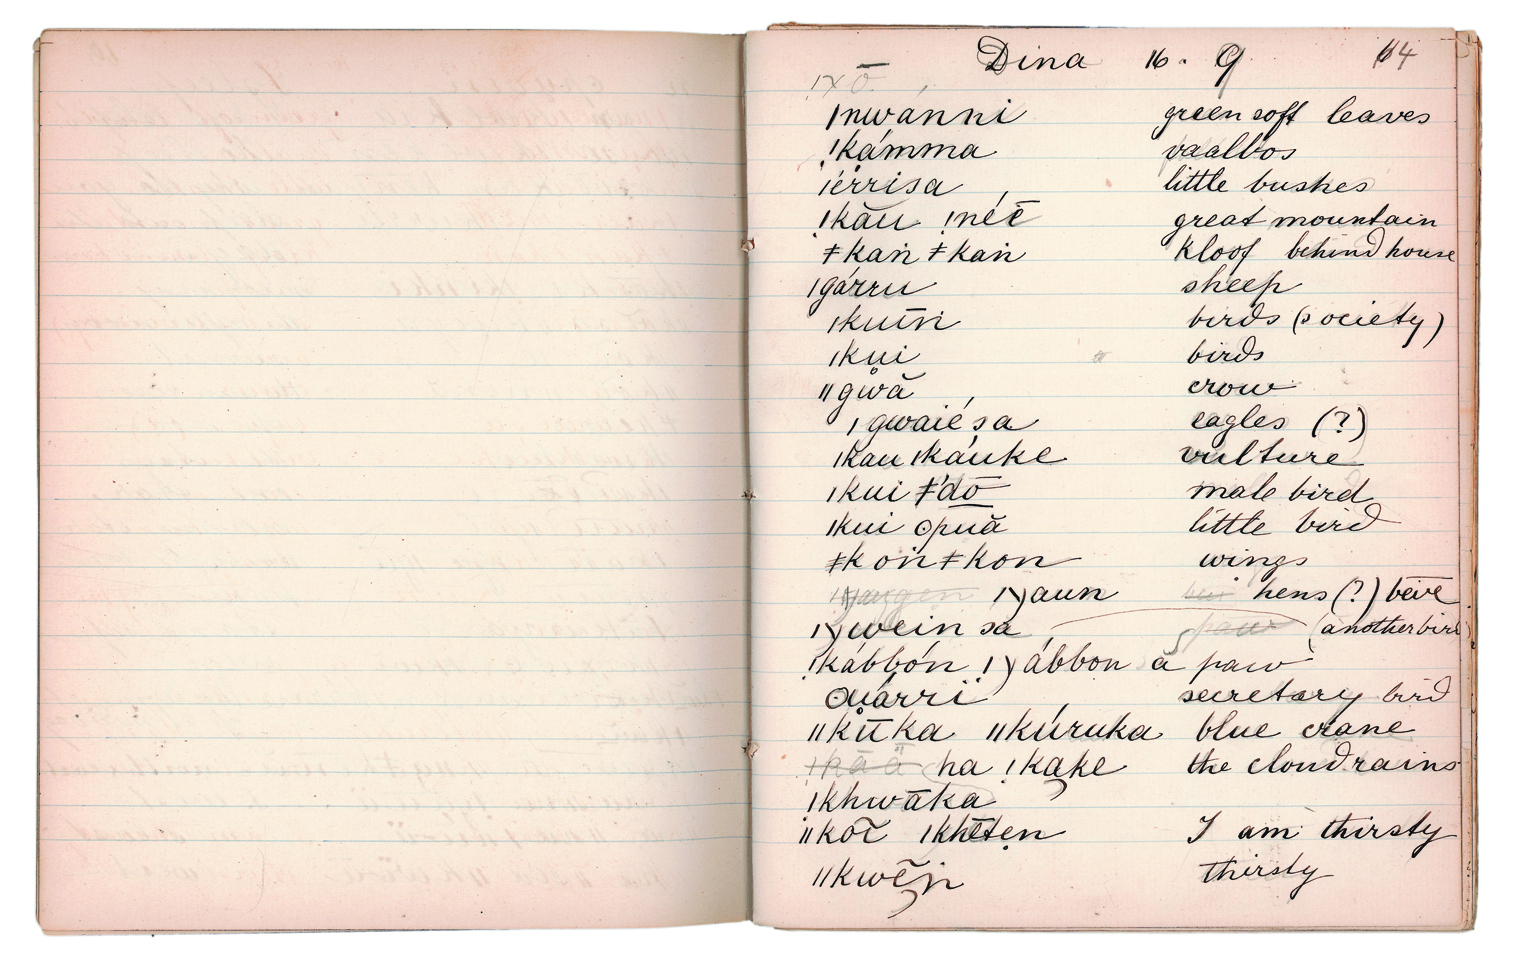 Dina 16. 9 64
!χō
ǀnwánni green soft leaves
!kámma vaalbos
ǀérrisa little bushes
!kău !néē great mountain
ǂkaṅ ǂkaṅ kloof behind house
ǀgárru sheep
ǀkuīṅ birds (society)
ǀkui birds
ǁgẘă crow
ǀgwaiésa eagles (?)
ǀkau ǀkáuke vulture
ǀkui ǂ'dō male bird
ǀkui ʘpuă little bird
ǂkoṅ ǂkon wings
ǀ)aun hens (?) bēvē
ǀ)wein sa (another bird
!kábbọ́n !)ábbon ă paw
ʘuárriï secretary bird
ǁků̄ka ǁkúruka blue crane
ha !kạke the cloud rains
!khwāka
ǁkoı̃ ǀkhẽtẹn I am thirsty
ǁkwẽịn thirsty